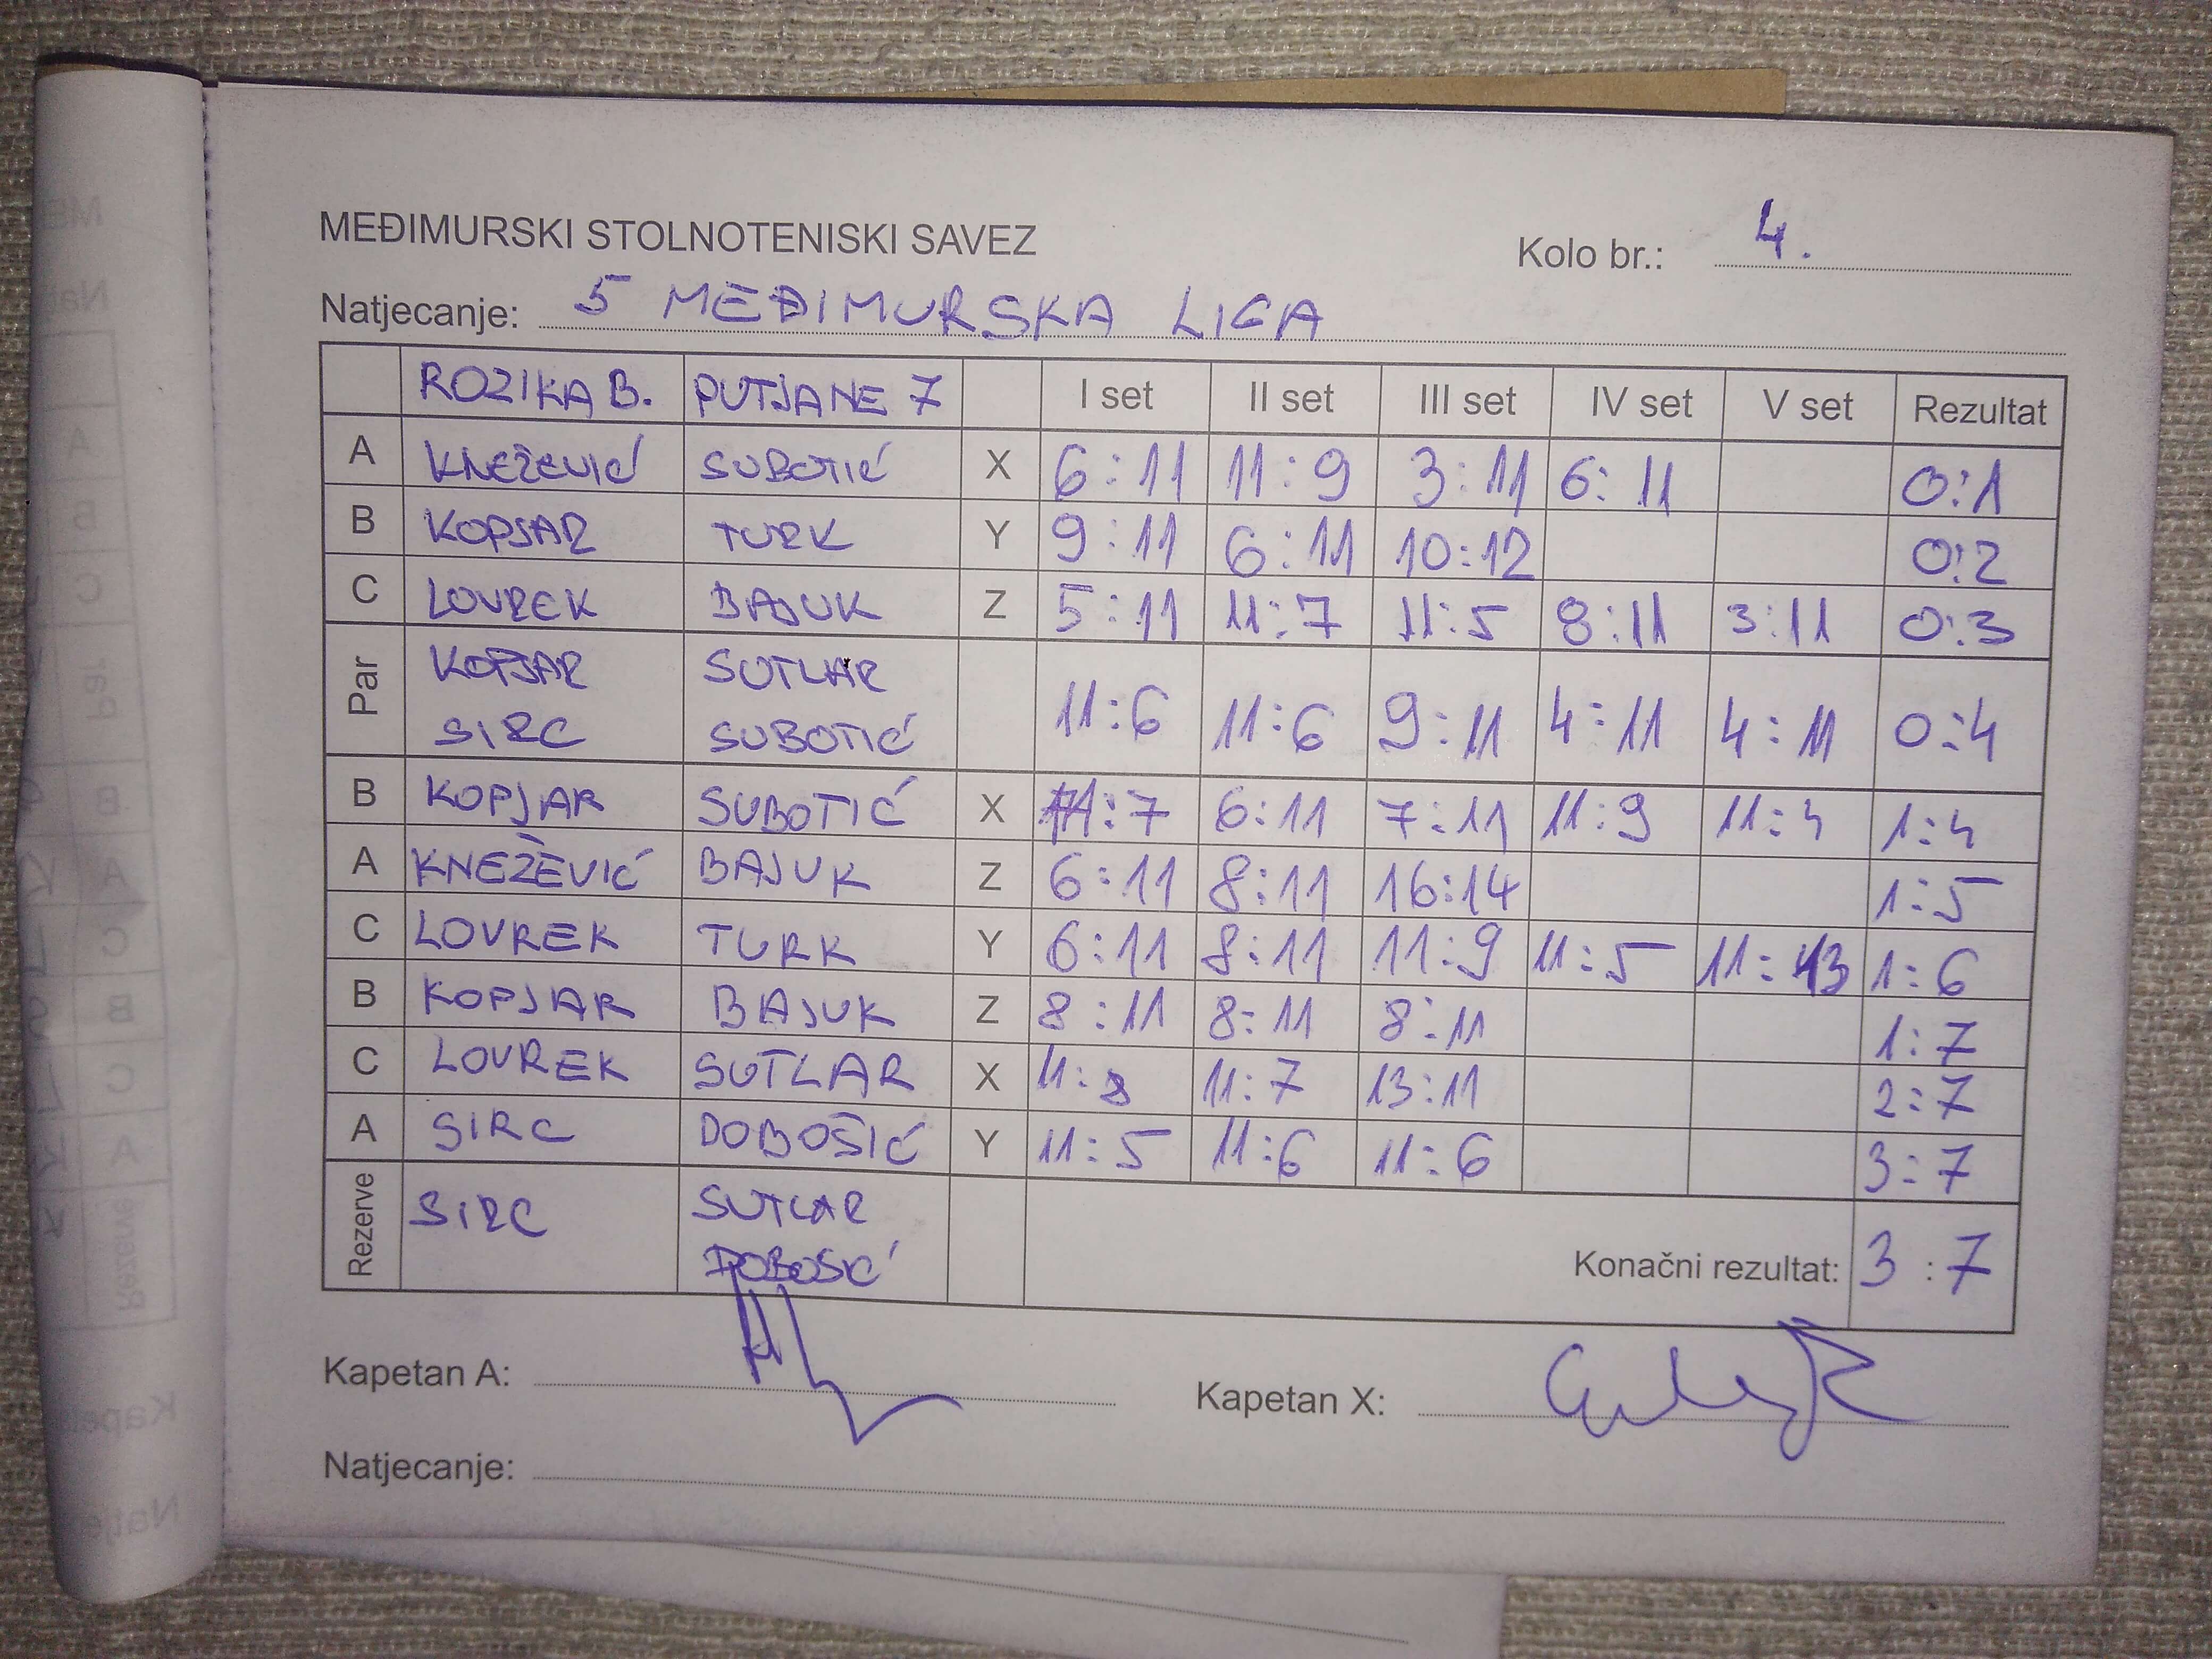 MEĐIMURSKI STOLNOTENISKI SAVEZ
Kolo br.: 4.
Natjecanje: 5 MEĐIMURSKA LIGA
ROZIKA B. PUTJANE 7 I set II set III set IV set V set Rezultat
A KNEŽEVIĆ SUBOTIĆ X 6:11 11:9 3:11 6:11 0:1
B KOPJAR TURK Y 9:11 6:11 10:12 0:2
C LOVREK BAJUK Z 5:11 11:7 11:5 8:11 3:11 0:3
Par KOPJAR SIRC SUTLAR SUBOTIĆ 11:6 11:6 9:11 4:11 4:11 0:4
B KOPJAR SUBOTIĆ X 11:7 6:11 7:11 11:9 11:4 1:4
A KNEŽEVIĆ BAJUK Z 6:11 8:11 16:14 1:5
C LOVREK TURK Y 6:11 8:11 11:9 11:5 11:13 1:6
B KOPJAR BAJUK Z 8:11 8:11 8:11 1:7
C LOVREK SUTLAR X 11:8 11:7 13:11 2:7
A SIRC DOBOŠIĆ Y 11:5 11:6 11:6 3:7
Rezerve SIRC SUTLAR DOBOSIĆ
Konačni rezultat: 3:7
Kapetan A:
Kapetan X:
Natjecanje: